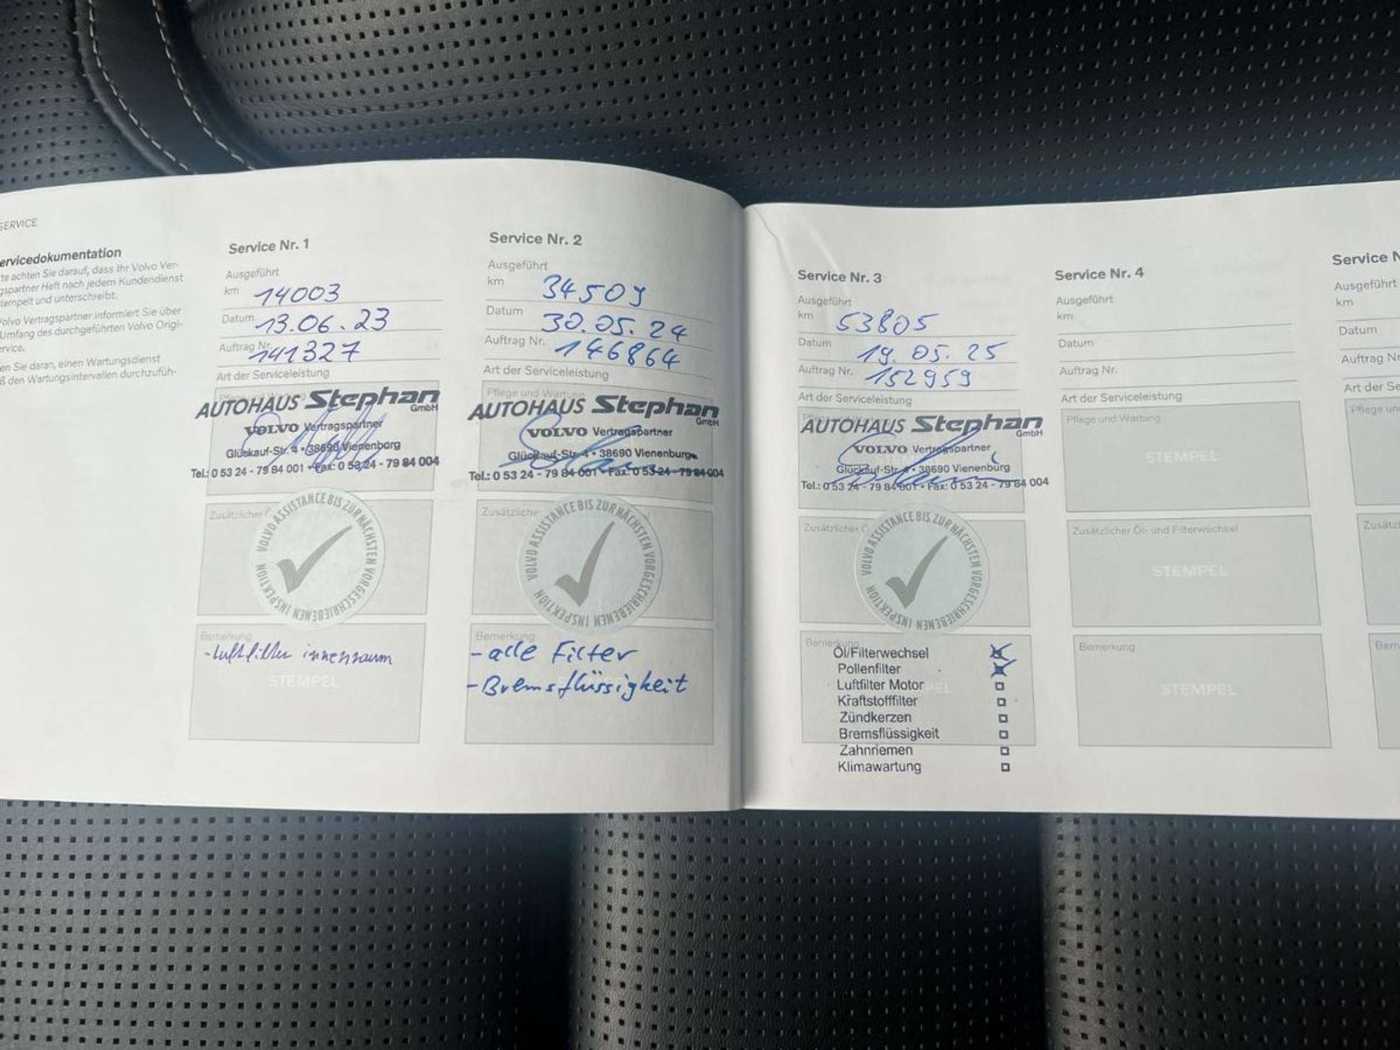 SERVICE
ervicedokumentation
te achten Sie darauf, dass Ihr Volvo Ver-
gspartner Heft nach jedem Kundendienst
tempelt und unterschreibt.
Volvo Vertragspartner informiert Sie über
Umfang des durchgeführten Volvo Origi-
ervice.
en Sie daran, einen Wartungsdienst
ß den Wartungsintervallen durchzufüh-
Service Nr. 1
Ausgeführt
km 14003
Datum 13.06.23
Auftrag Nr. 141327
Art der Serviceleistung
AUTOHAUS Stephan
GmbH
VOLVO Vertragspartner
Glückauf-Str. 4 • 38690 Vienenburg
Tel.: 0 53 24 - 79 84 001 • Fax: 0 53 24 - 79 84 004
Zusätzlicher
VOLVO ASSISTANCE BIS ZUR NÄCHSTEN VORGESCHRIEBENEN INSPEKTION
Bemerkung
- Luftfilter innenraum
STEMPEL
Service Nr. 2
Ausgeführt
km 34509
Datum 30.05.24
Auftrag Nr. 146864
Art der Serviceleistung
Pflege und Wartung
AUTOHAUS Stephan
GmbH
VOLVO Vertragspartner
Glückauf-Str. 4 • 38690 Vienenburg
Tel.: 0 53 24 - 79 84 001 • Fax: 0 53 24 - 79 84 004
Zusätzliche
VOLVO ASSISTANCE BIS ZUR NÄCHSTEN VORGESCHRIEBENEN INSPEKTION
Bemerkung
- alle Filter
- Bremsflüssigkeit
Service Nr. 3
Ausgeführt
km 53805
Datum 19.05.25
Auftrag Nr. 152959
Art der Serviceleistung
AUTOHAUS Stephan
GmbH
VOLVO Vertragspartner
Glückauf-Str. 4 • 38690 Vienenburg
Tel.: 0 53 24 - 79 84 001 • Fax: 0 53 24 - 79 84 004
Zusätzlicher Ö
VOLVO ASSISTANCE BIS ZUR NÄCHSTEN VORGESCHRIEBENEN INSPEKTION
Bemerkung
Öl/Filterwechsel
Pollenfilter
Luftfilter Motor
Kraftstofffilter
Zündkerzen
Bremsflüssigkeit
Zahnriemen
Klimawartung
Service Nr. 4
Ausgeführt
km
Datum
Auftrag Nr.
Art der Serviceleistung
Pflege und Wartung
STEMPEL
Zusätzlicher Öl- und Filterwechsel
STEMPEL
Bemerkung
STEMPEL
Service N
Ausgeführt
km
Datum
Auftrag Nr
Art der Se
Pflege und
Zusätzl
Bemerk